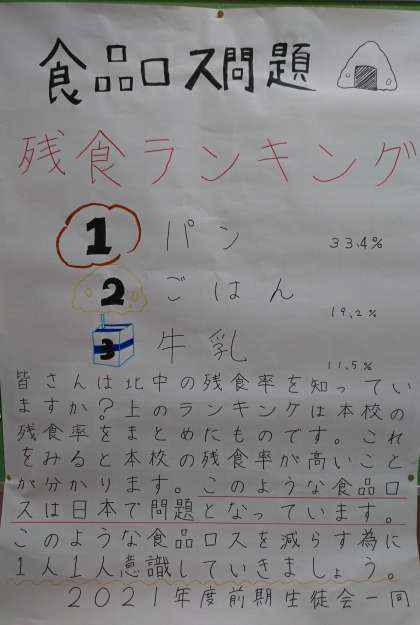 食品ロス問題
残食ランキング
1 パン 33.4%
2 ごはん 19.2%
3 牛乳 11.5%
皆さんは北中の残食率を知ってい
ますか?上のランキングは本校の
残食率をまとめたものです。これ
をみると本校の残食率が高いこと
が分かります。このような食品ロ
スは日本で問題となっています。
このような食品ロスを減らす為に
1人1人意識していきましょう。
2021年度前期生徒会一同